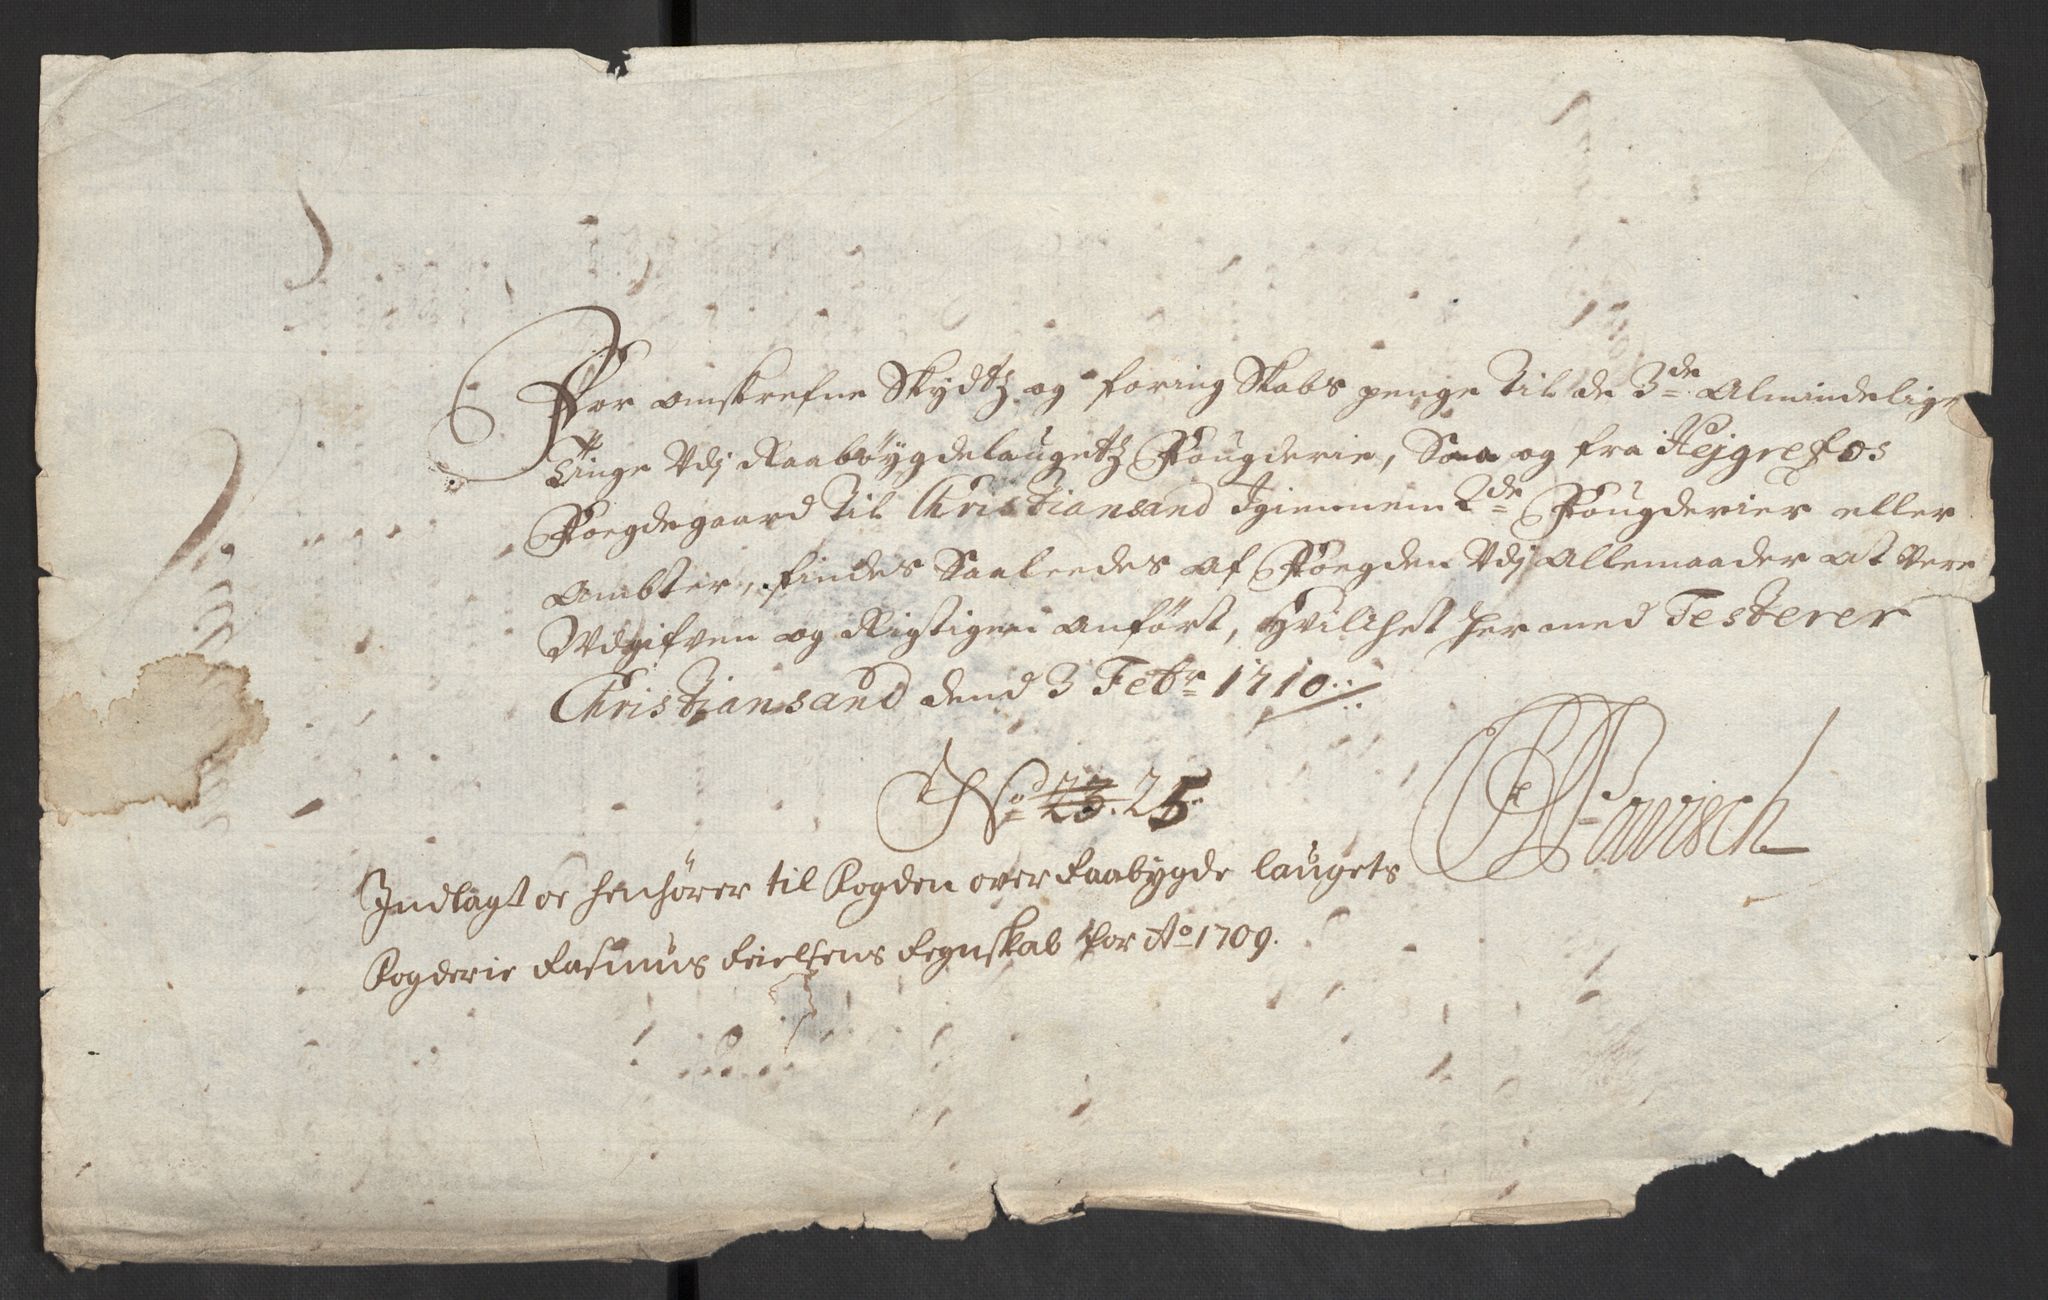 For omskrefne Skydtz og foring Skabs penge til de 3de Almindelige
Tinge Udj Raabøygdelaugetz Fougderie, Saa og fra Hejgrefos
Foegdegaard til Christiansand Igiennem 2de Fougderier eller
Ambter, findes Saaleedes af Foegden Udj Allemaader at vere
Udgifven og Rigtigen anført, Hvilchet her med Testerer
Christiansand dend 3 Febr 1710
No 23. 25
Indlagt oc henhører til Fogden over Raabygde laugets
Fogderie Rasmus Regnskab for Ao 1709.